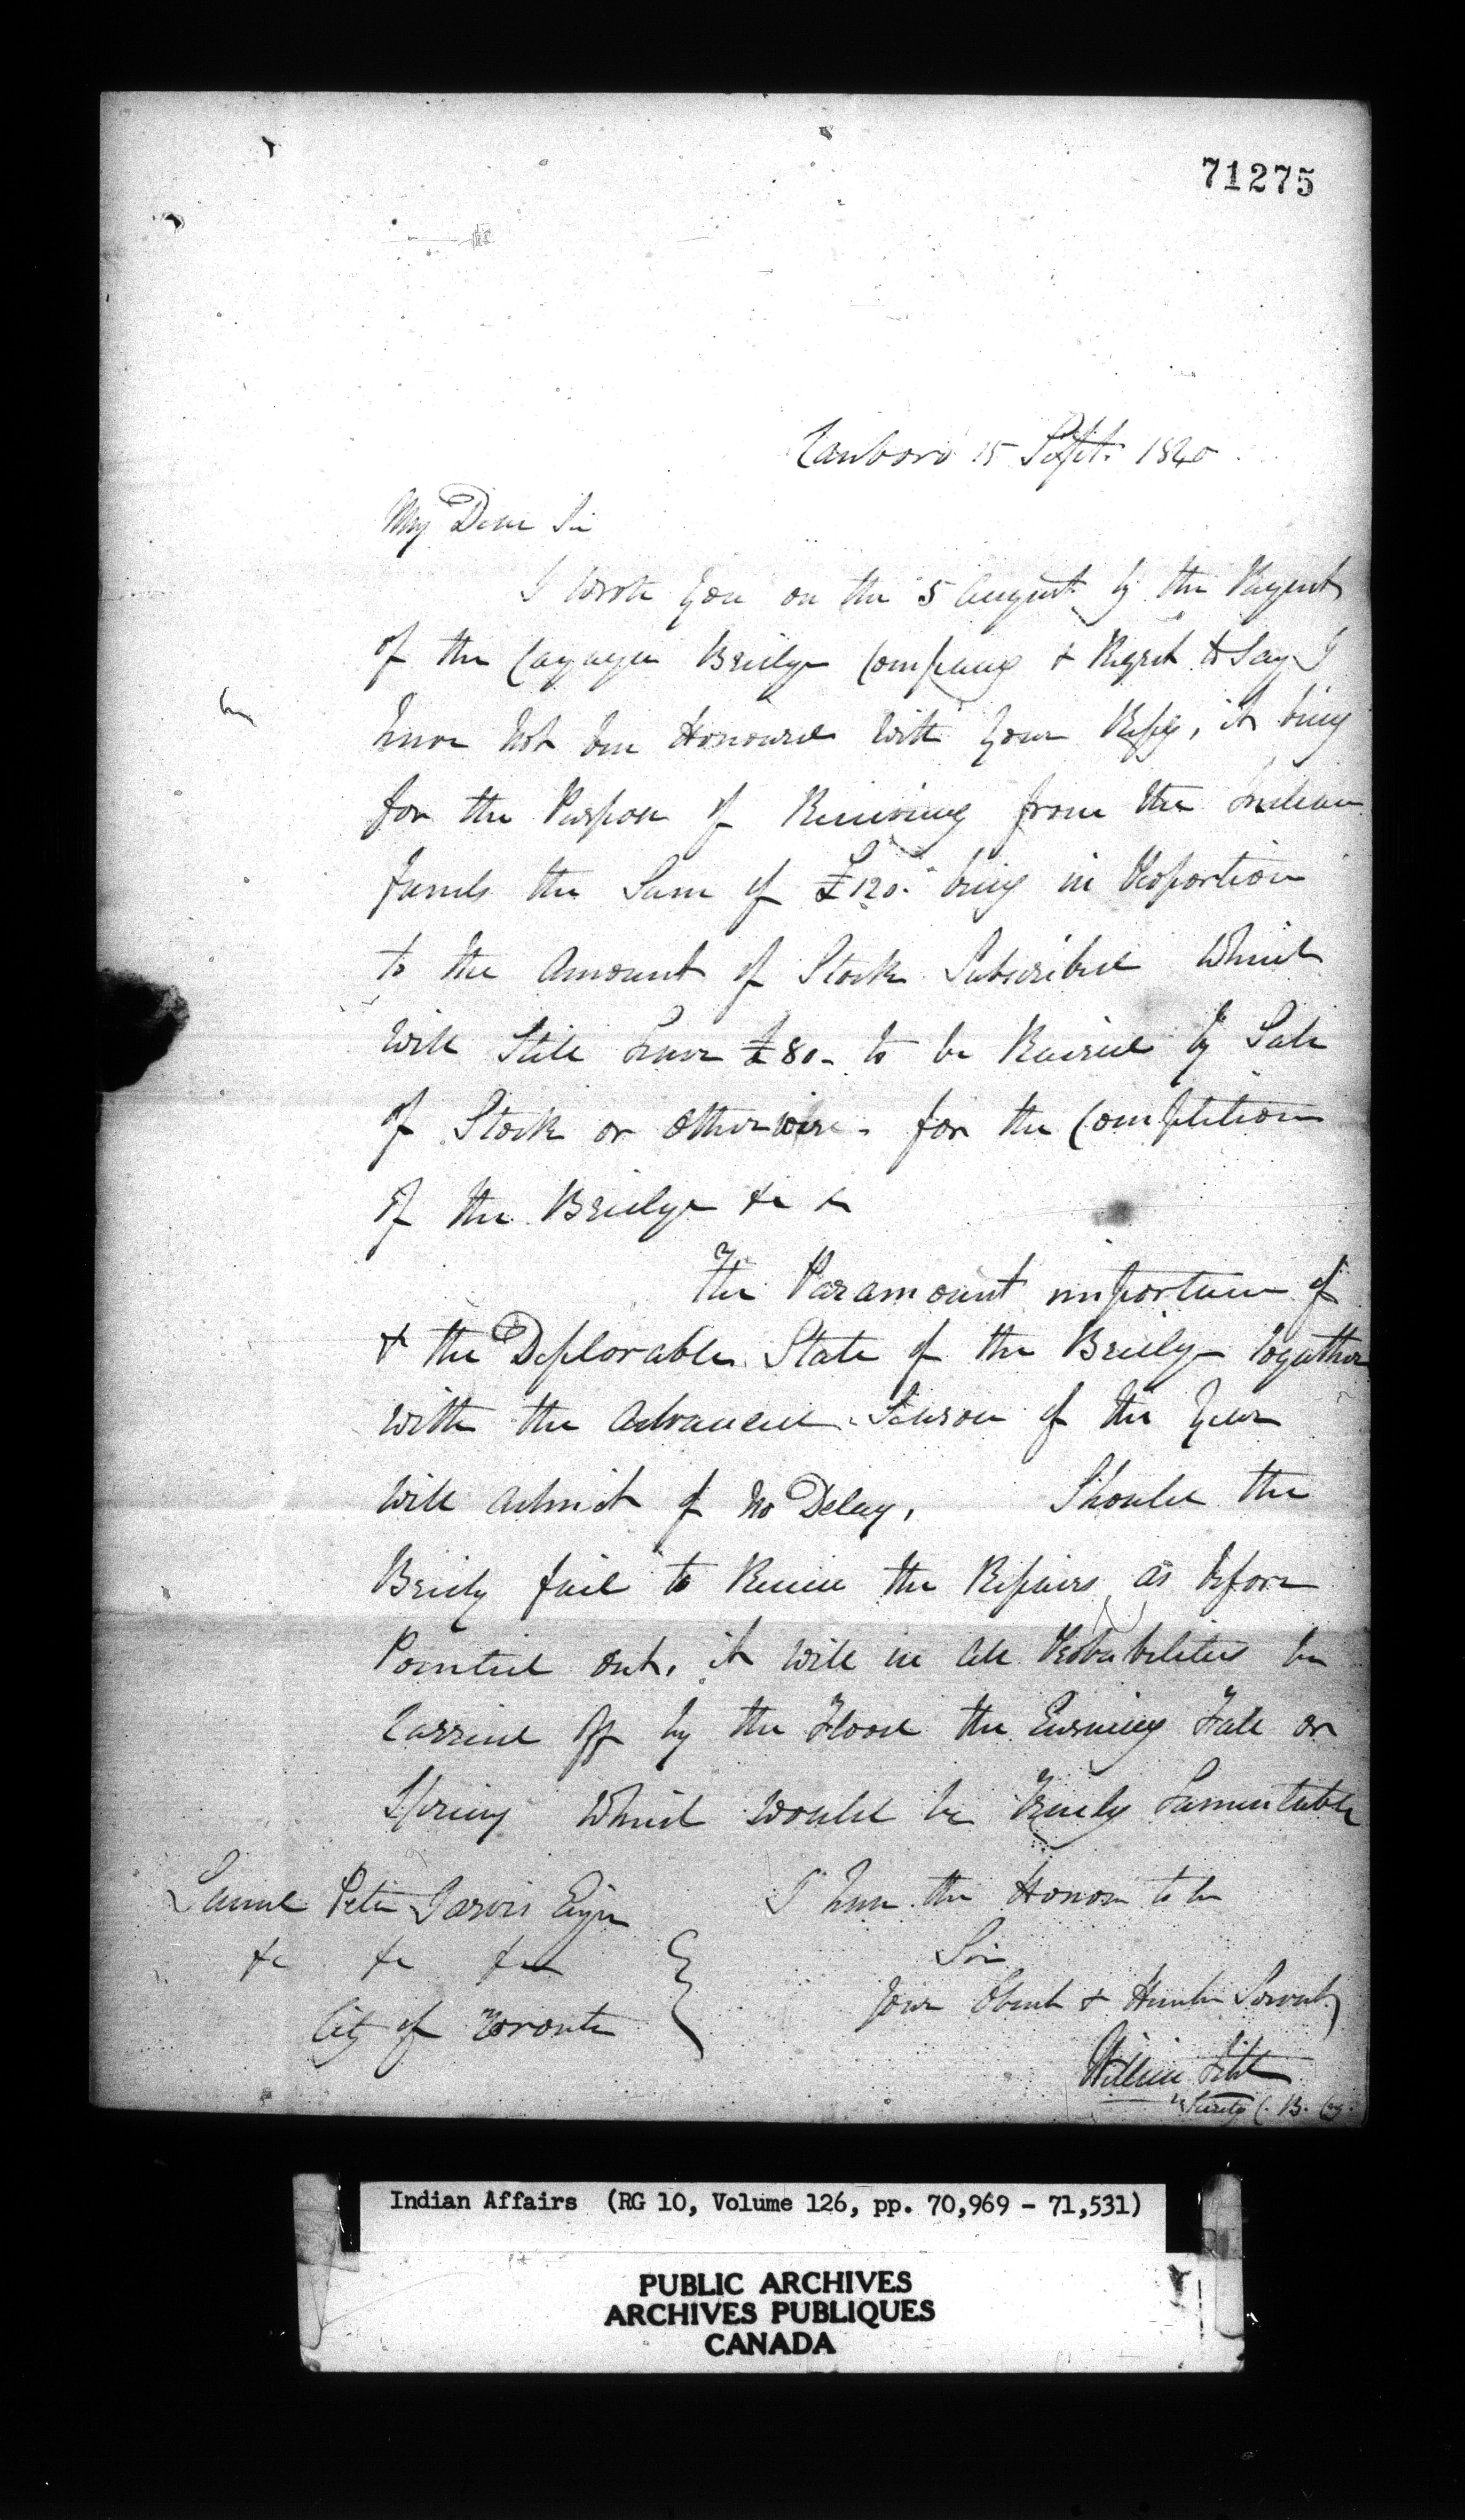 71275
Canboro 15 Sept. 1840
My Dear Sir
I Wrote You on the 5 August by the Request
of the Cayuga Bridge Company & Regret to Say I
have Not been Honoured With Your Reply, it being
for the Purpose of Receiving from the Indian
funds the Sum of £120. being in Proportion
to the Amount of Stock Subscribed Which
Will Still Leave £80- to be Raised by Sale
of Stock or Otherwise - for the Completion
of the Bridge &c &
The Paramount importance of
& the Deplorable State of the Bridge Together
With the Advanced Season of the Year
Will Admit of No Delay, Should the
Bridge fail to Receive the Repairs as before
Pointed out, it Will in All Probabilities be
Carried Off by the Flood the Ensuing Fall or
Spring Which Would be Truely Lamentable
I have the Honor to be
Sir
Your Obedt & Humble Servant
William Fitch
Secrety C. B. Coy.
Samuel Peter Jarvis Esqr
&c &c &c
City of Toronto
Indian Affairs (RG 10, Volume 126, pp. 70,969 - 71,531)
PUBLIC ARCHIVES
ARCHIVES PUBLIQUES
CANADA